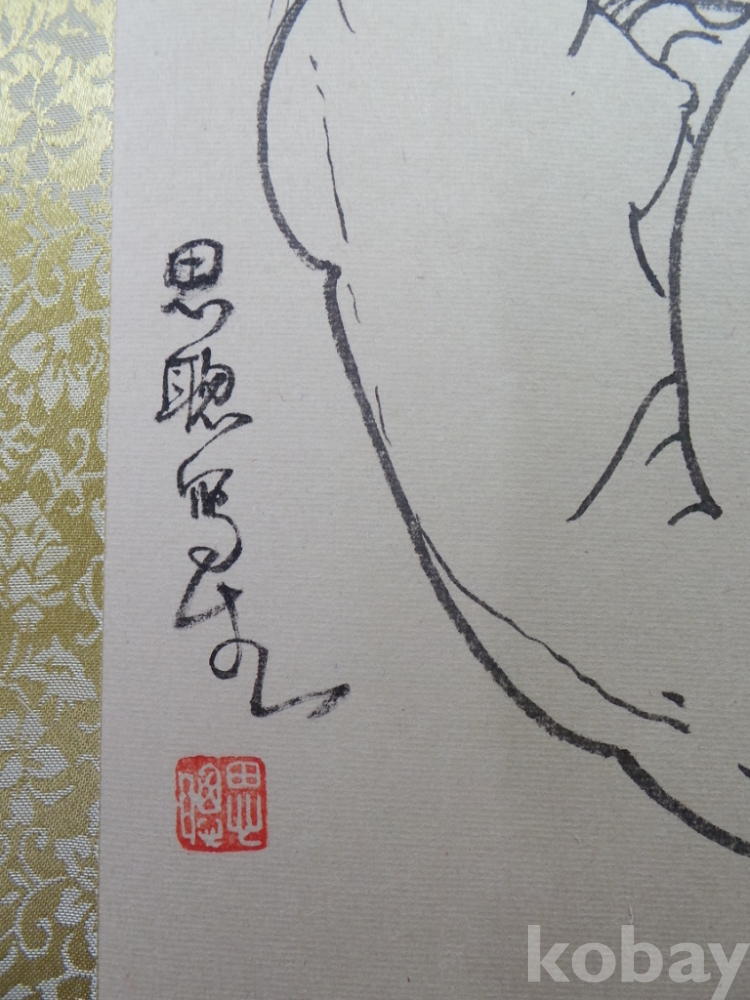 思聰寫
思聰
kobay